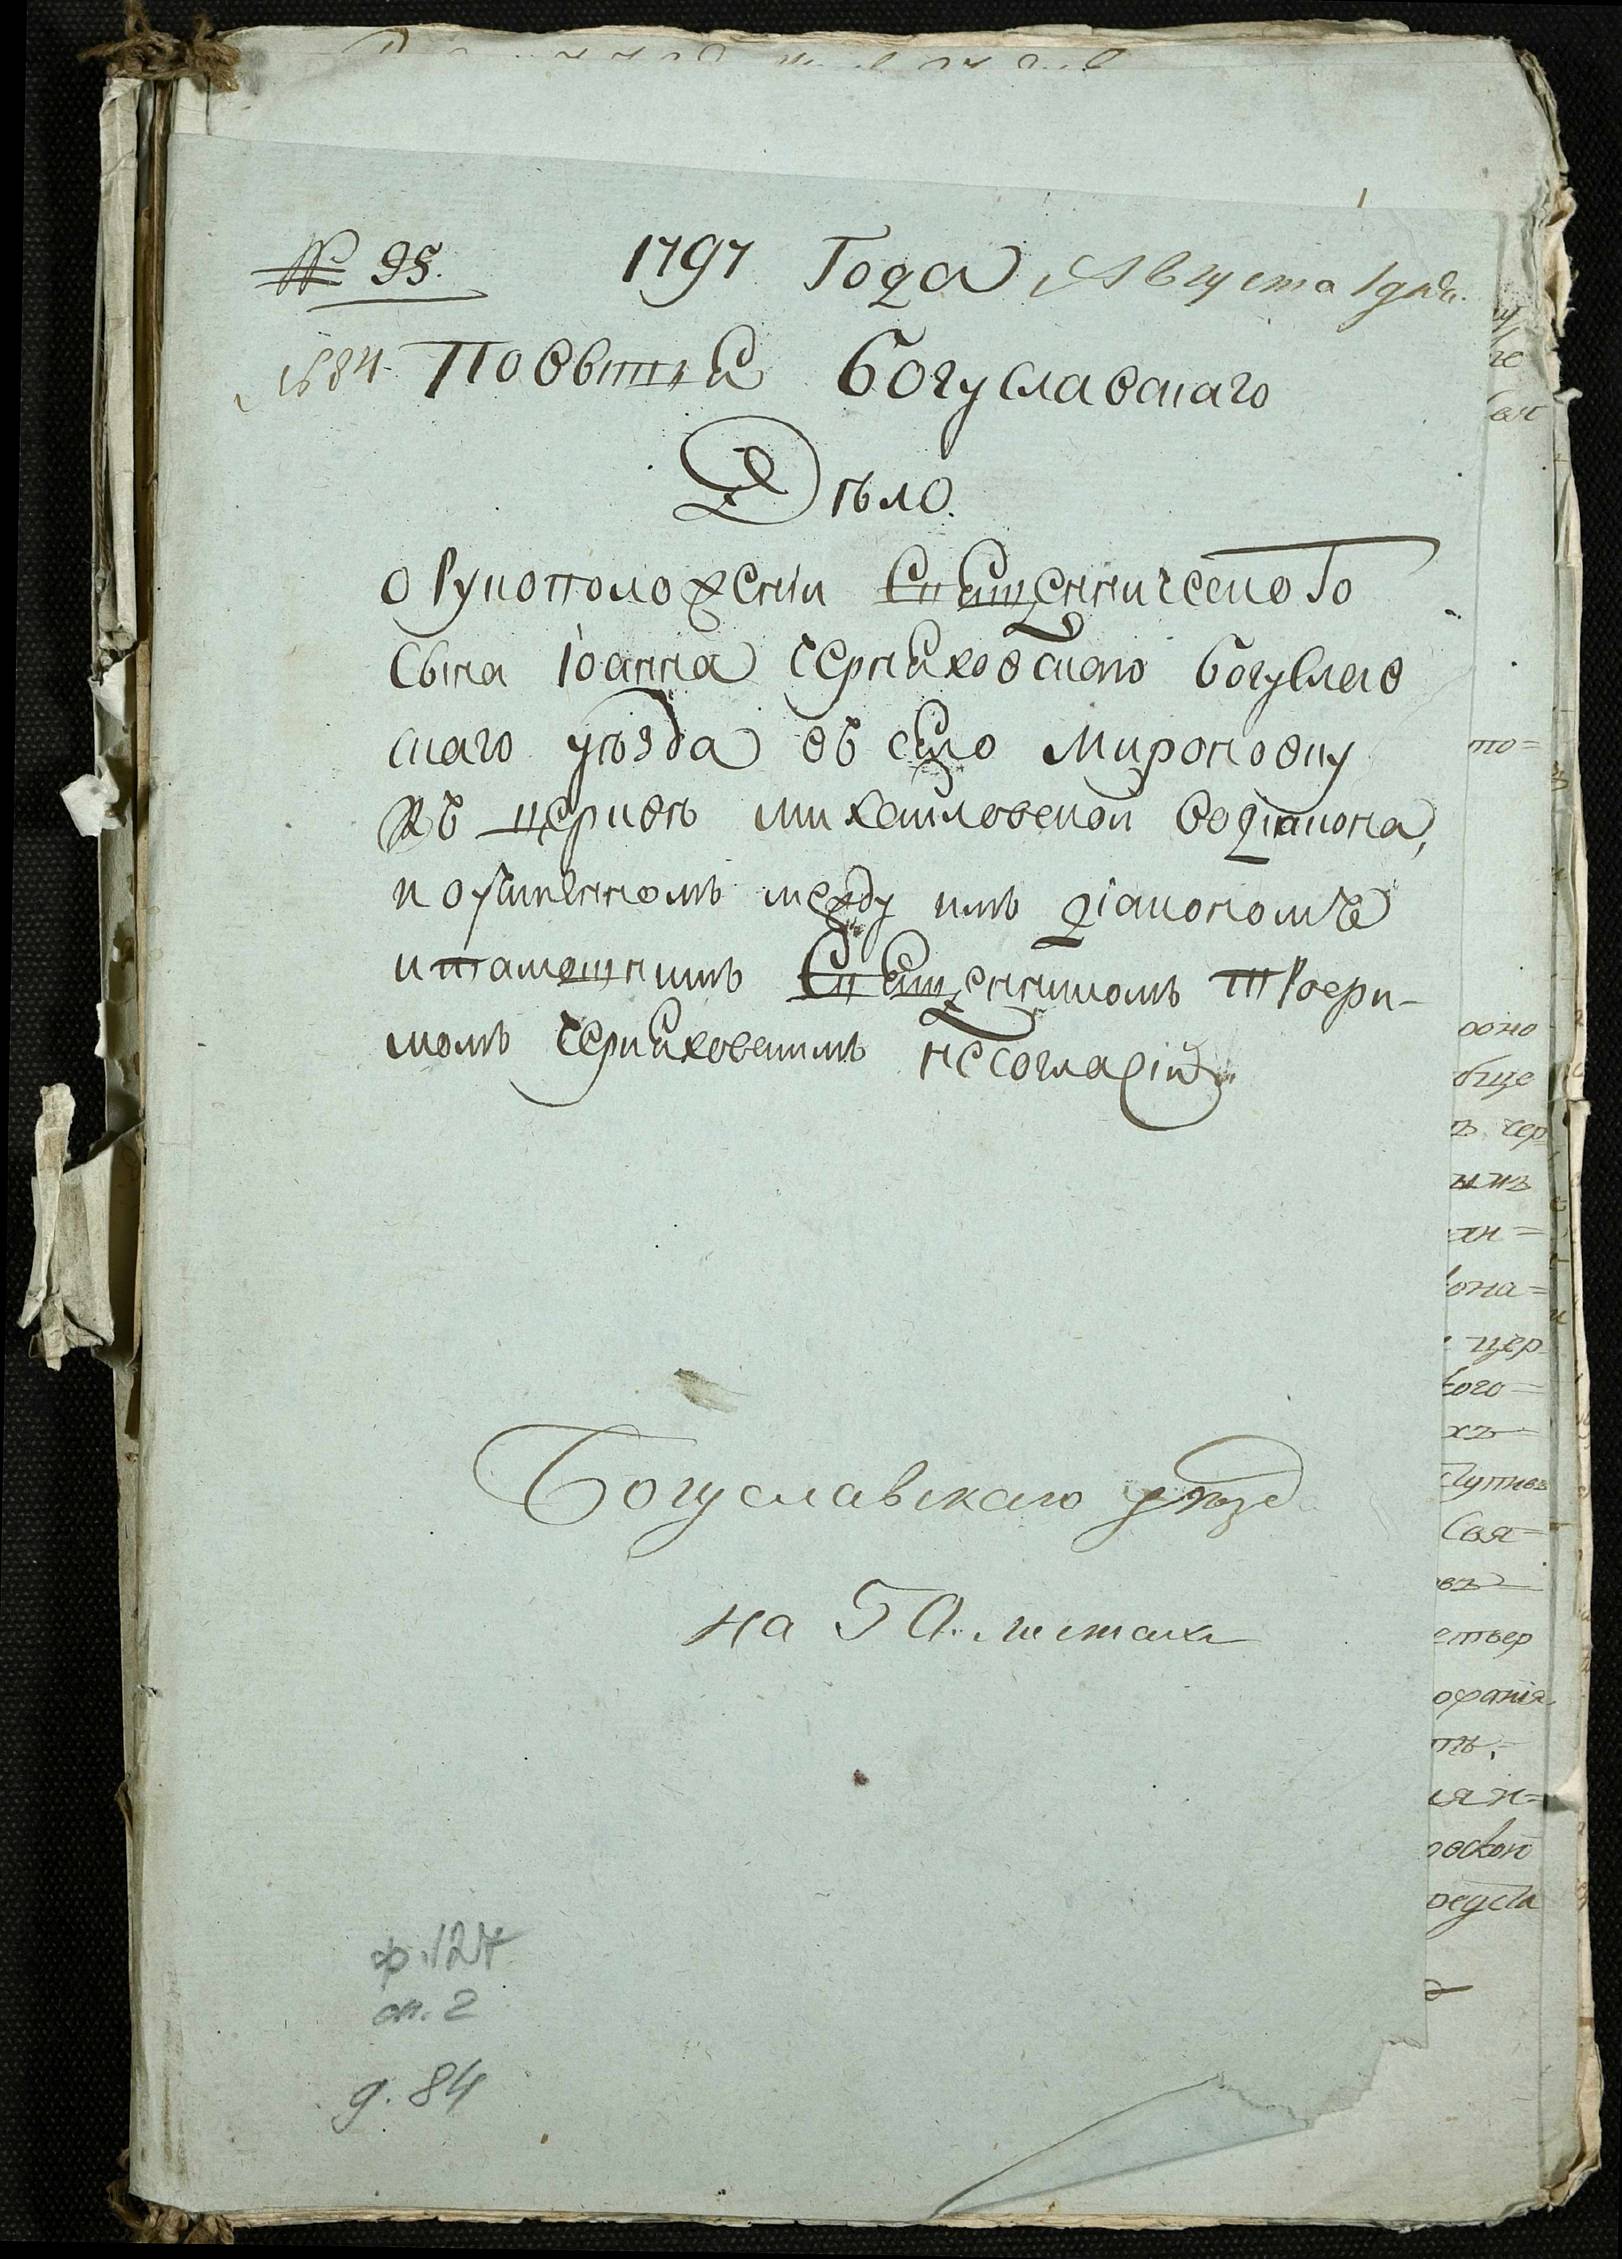 № 95. 1797 Года Августа 1 дня.
№ 84. Повытія Богуславскаго
Дѣло.
о Рукоположеніи Священническаго
сына Іоанна Черняховскаго Богуслав
скаго уѣзда въ село Мироновку
къ церквѣ Михайловской во діакона,
и о учиненномъ между имъ діакономъ
и тамошнимъ Священникомъ
Черняховскимъ несогласіи
Богуславскаго уѣзд
на 50. листахъ
ф. 127
оп. 2
д. 84